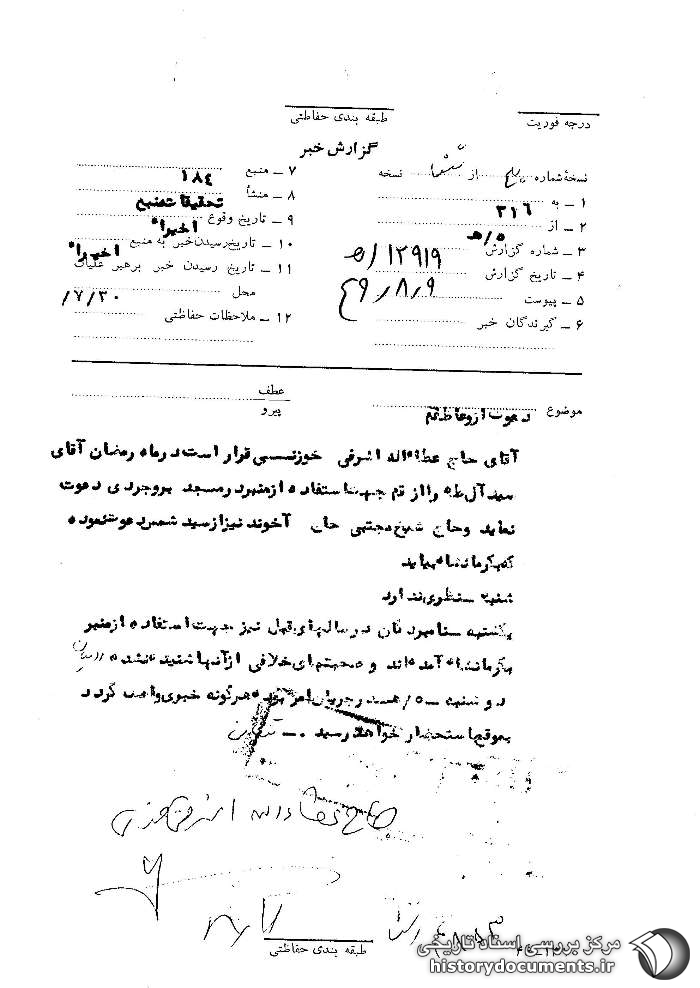 درجه فوریت
طبقه بندی حفاظتی
گزارش خبر
نسخهٔ شماره پنج از ششما نسخه
۱ ــ به ۳۱۶
۲ ــ از ۵/هـ
۳ ــ شماره گزارش ۱۲۹۱۹/هـ
۴ ــ تاریخ گزارش ۴۹/۸/۹
۵ ــ پیوست
۶ ــ گیرندگان خبر
۷ ــ منبع ۱۸۴
۸ ــ منشأ تحقیقات منبع
۹ ــ تاریخ وقوع اخیراً
۱۰ ــ تاریخ رسیدن خبر به منبع اخیراً
۱۱ ــ تاریخ رسیدن خبر برهبر عملیات
محل ۷/۳۰/
۱۲ ــ ملاحظات حفاظتی
موضوع دعوت از وعاظ قم
عطف
پیرو
آقای حاج عطااله اشرفی خوزنسبی قرار است در ماه رمضان آقای
سید آل طه را از قم جهت استفاده از منبر در مسجد بروجردی دعوت
نماید و حاج شیخ مجتبی حاج آخوند نیز از سید شمس دعوت نموده
که بکرمانشاه بیاید
شنبه ــ نظری ندارد
یکشنبه ــ نامبردگان در سالهای قبل نیز جهت استفاده از منبر
بکرمانشاه آمده‌اند و صحبتهای خلافی از آنها شنیده نشده
دوشنبه ــ ۵/هـ در جریان امر بوده هرگونه خبری واصل گردد
بموقع باستحضار خواهد رسید . ــ
حاج عطاءاله اشرفی
طبقه بندی حفاظتی
مرکز بررسی اسناد تاریخی
historydocuments.ir